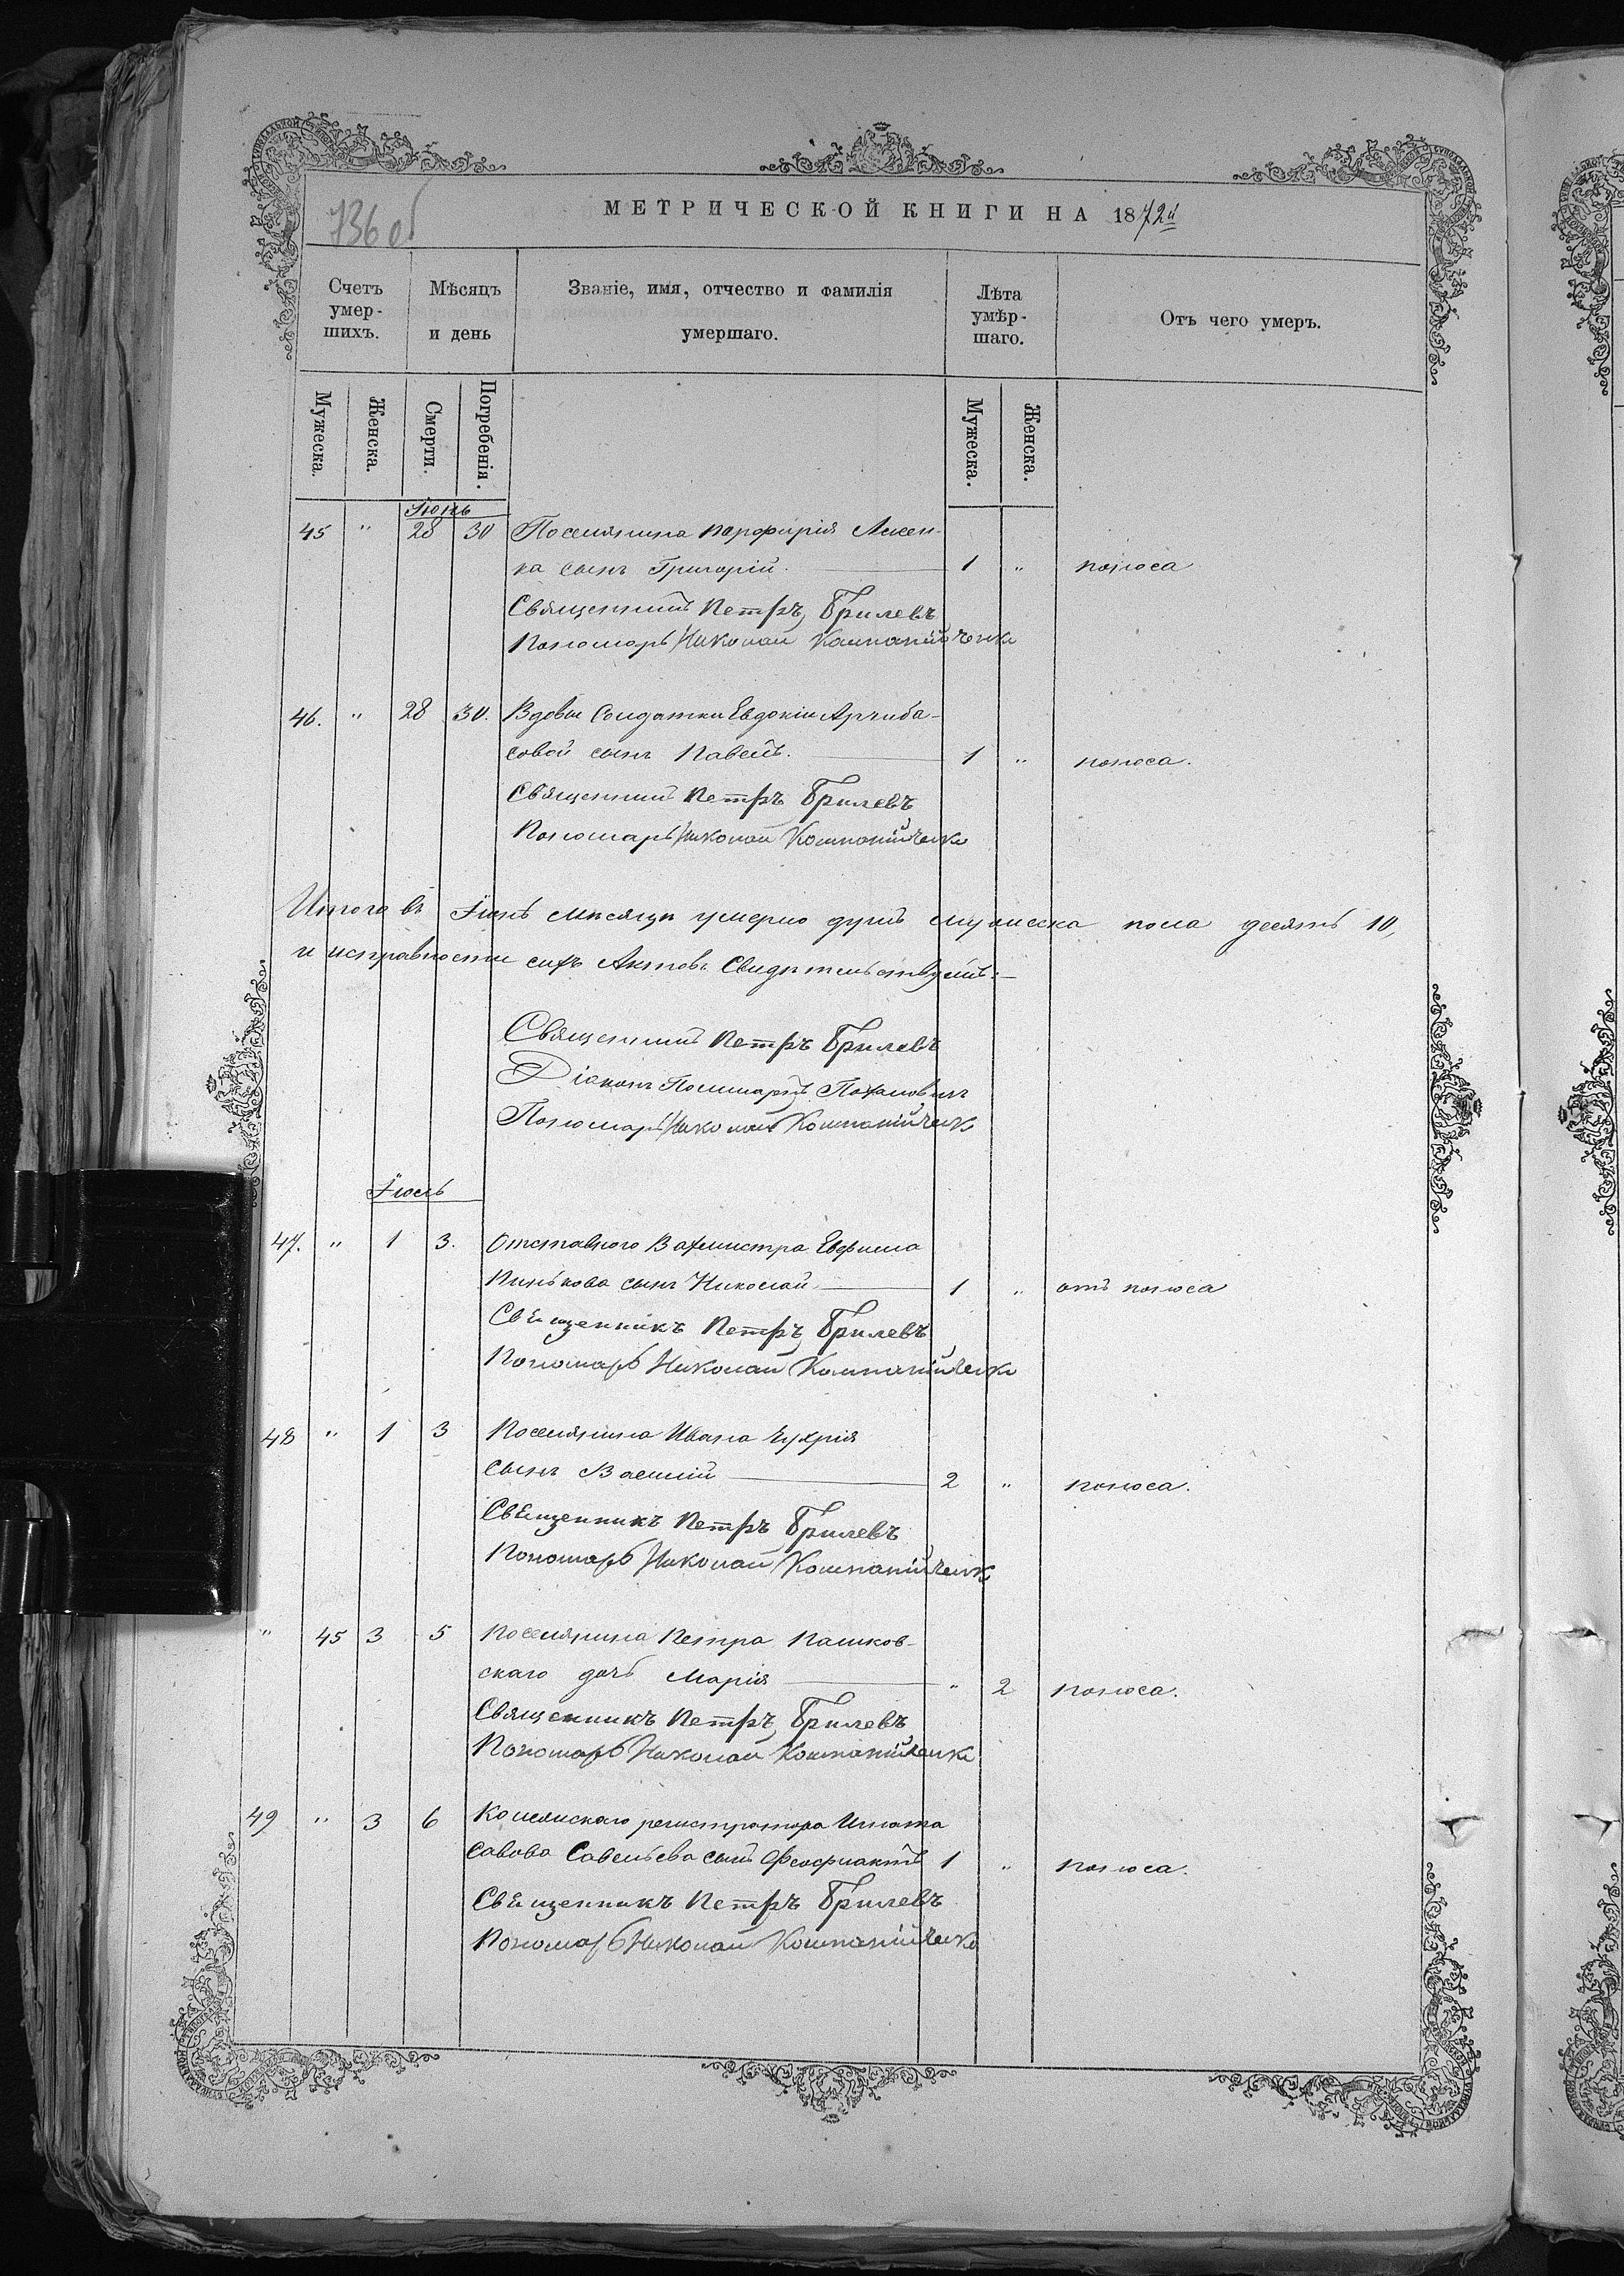 736 об
МЕТРИЧЕСКОЙ КНИГИ НА 1872й
Счетъ умер-шихъ.
Мѣсяцъ и день
Званіе, имя, отчество и фамилія умершаго.
Лѣта умѣр-шаго.
Отъ чего умеръ.
Мужеска. Женска. Смерти. Погребенія. Мужеска. Женска.
Іюнь
45 " 28 30 Поселянина Порфирія Лисен-
ка сынъ Григорій. 1 " поноса
Священникъ Петръ Брилевъ
Пономарь Николай Компанійченко
46. " 28 30. Вдовы Солдатки Евдокіи Арчиба-
совой сынъ Павелъ. 1 " поноса.
Священникъ Петръ Брилевъ
Пономарь Николай Компанійченко
Итого въ Іюнѣ мѣсяцѣ умерло душъ мужеска пола десять 10,
и исправности сихъ Актовъ Свидѣтельствуемъ:
Священникъ Петръ Брилевъ
Діаконъ
Пономарь Николай Компанійченко
Іюль
47. " 1 3. Отставного Вахмистра Евфима
Пинькова сынъ Николай 1 " отъ поноса
Священникъ Петръ Брилевъ
Пономарь Николай Компанійченко
48 " 1 3 Поселянина Ивана Чухрія
сынъ Василій 2 " поноса.
Священникъ Петръ Брилевъ
Пономарь Николай Компанійченко
" 45 3 5 Поселянина Петра Пашков-
скаго дочь Марія " 2 поноса.
Священникъ Петръ Брилевъ
Пономарь Николай Компанійченко
49 " 3 6 Колежскаго регистратора Игната
Савова Савельева сынъ Феофилактъ 1 " поноса.
Священникъ Петръ Брилевъ
Пономарь Николай Компанійченко